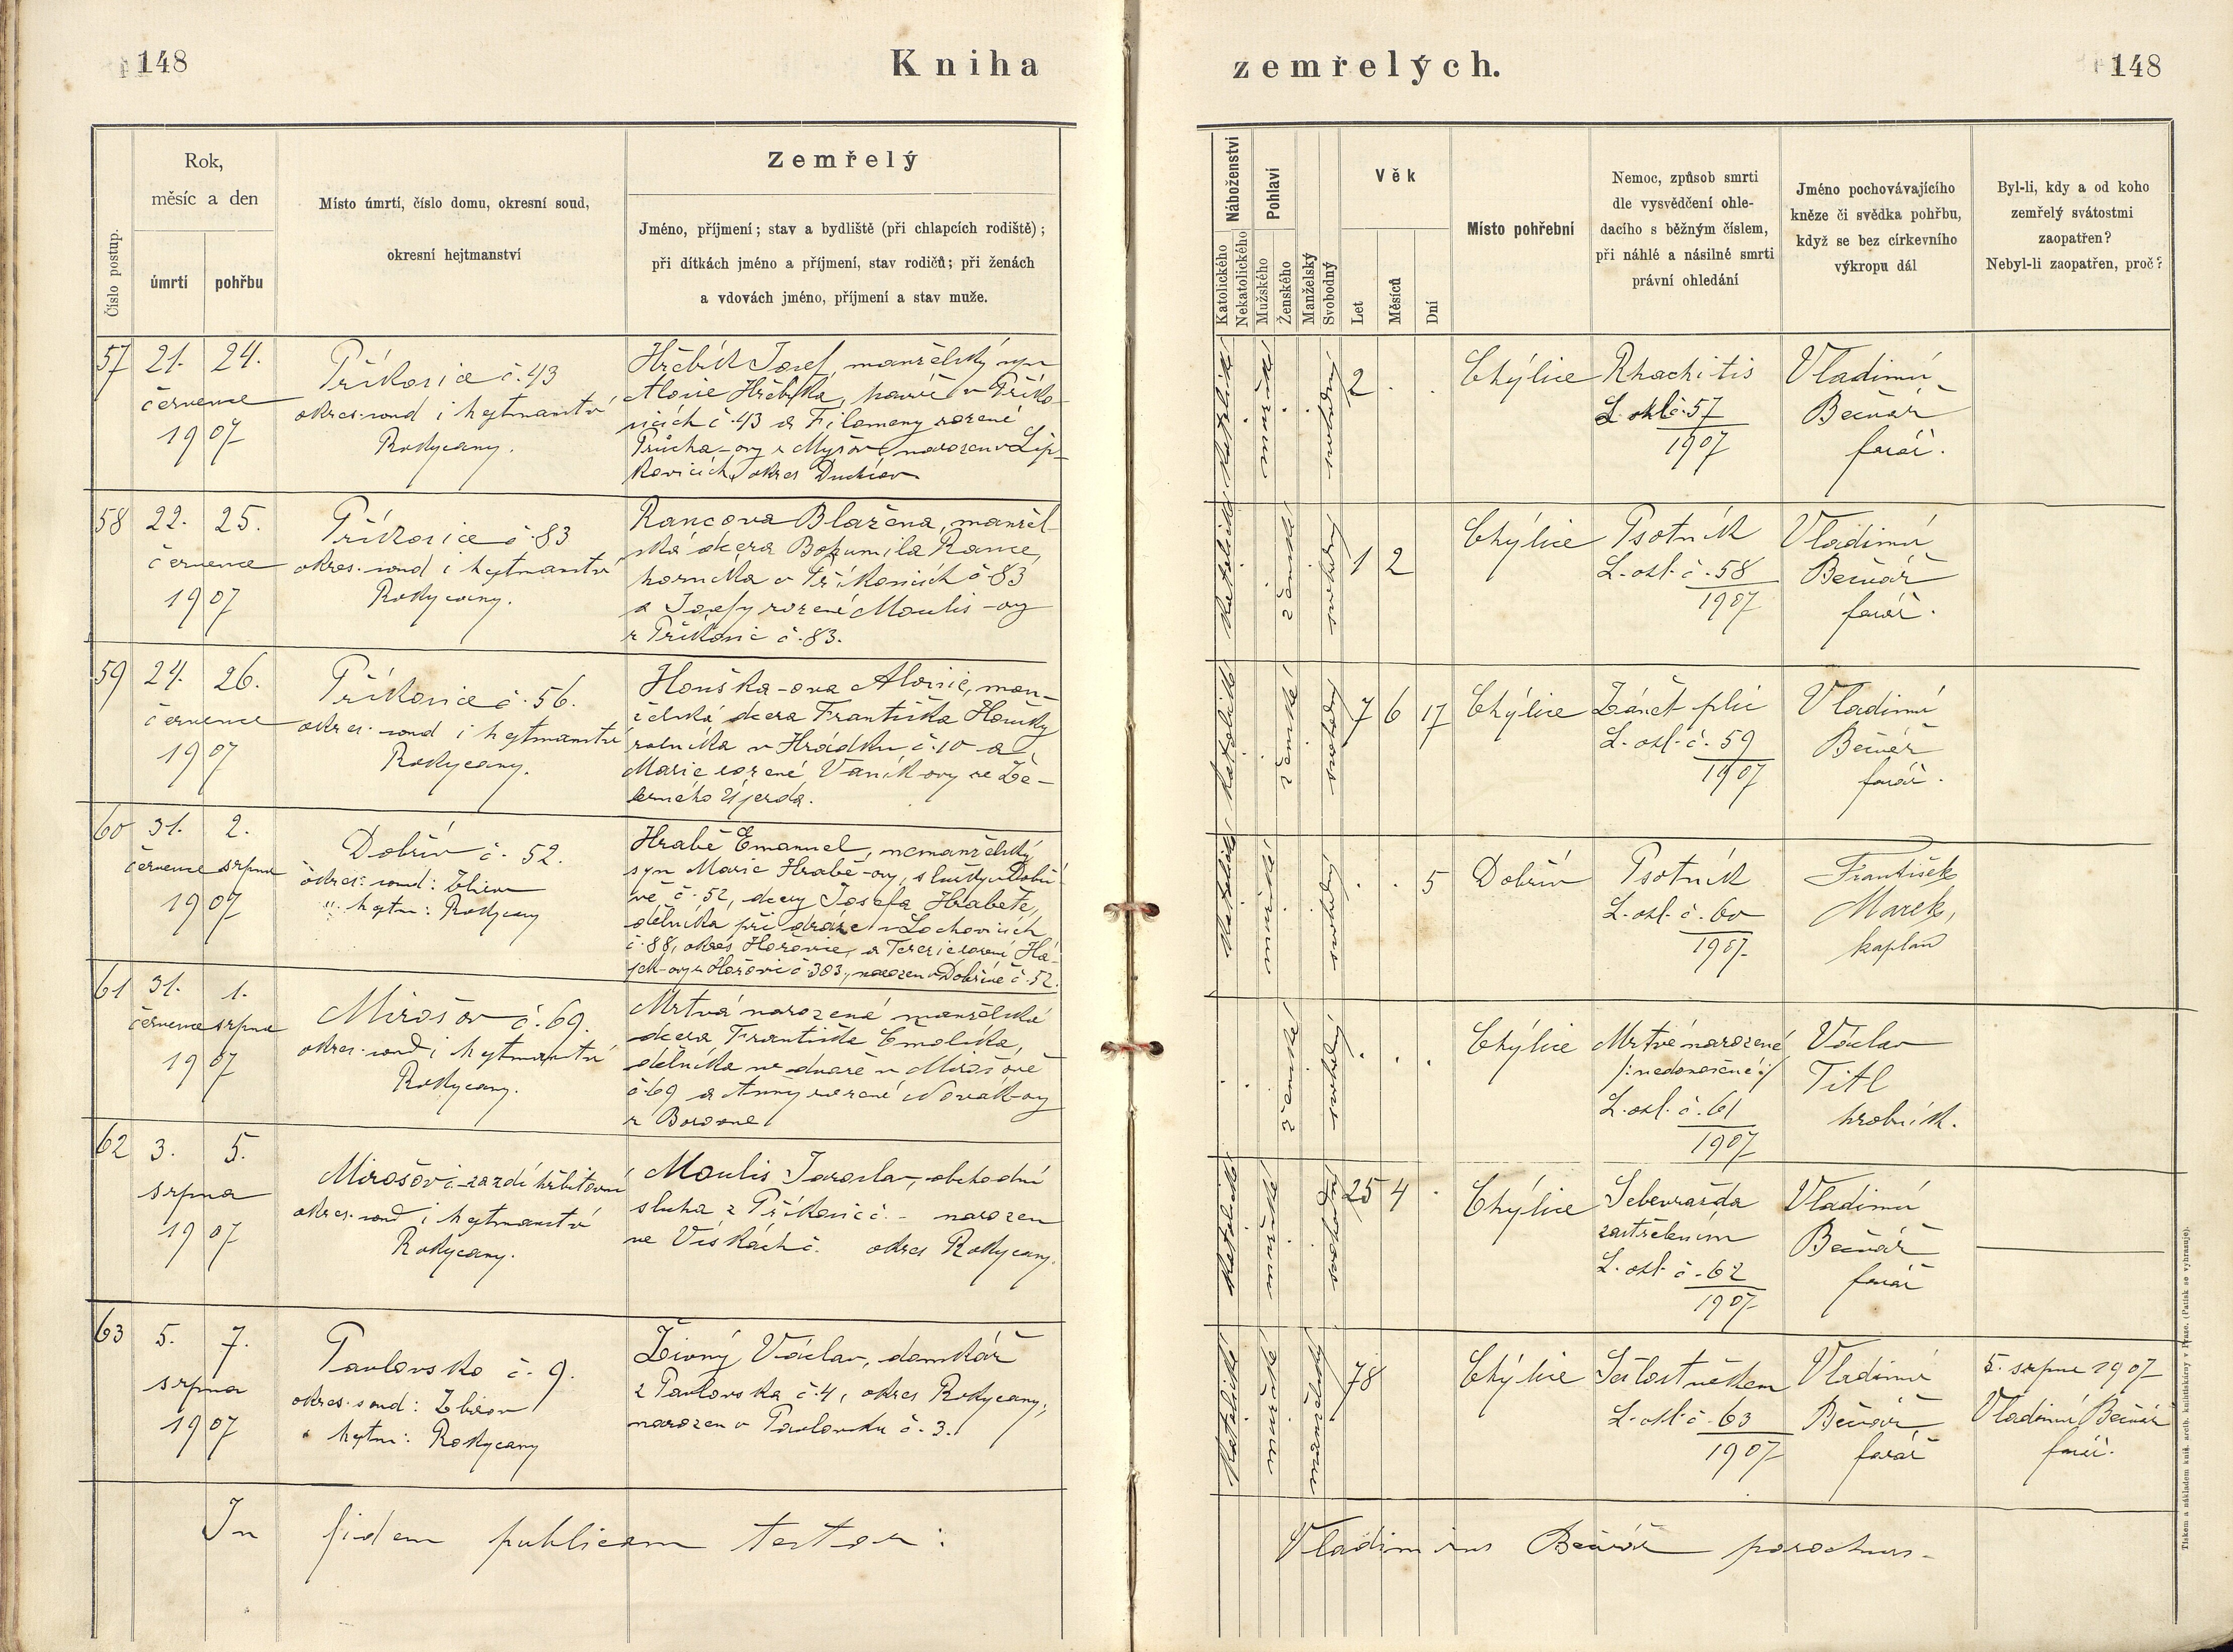 148
Kniha
zemřelých.
148
Číslo postup.
Rok,
měsíc a den
úmrtí
pohřbu
Místo úmrtí, číslo domu, okresní soud,
okresní hejtmanství
Zemřelý
Jméno, příjmení; stav a bydliště (při chlapcích rodiště);
při dítkách jméno a příjmení, stav rodičů; při ženách
a vdovách jméno, příjmení a stav muže.
Náboženství
Katolického
Nekatolického
Pohlaví
Mužského
Ženského
Manželský
Svobodný
Věk
Let
Měsíců
Dní
Místo pohřební
Nemoc, způsob smrti
dle vysvědčení ohle-
dacího s běžným číslem,
při náhlé a násilné smrti
právní ohledání
Jméno pochovávajícího
kněze či svědka pohřbu,
když se bez církevního
výkropu dál
Byl-li, kdy a od koho
zemřelý svátostmi
zaopatřen?
Nebyl-li zaopatřen, proč?
57
21.
24.
července
1907
Příkosice č. 43
okres. soud i hejtmanství
Rokycany.
Hřebík Josef, manželský syn
Aloise Hřebíka, havíře v Příko-
sicích č. 43 a Filomeny rozené
Průcha-ovy z Myšova, narozen v Lip-
kovicích, okres Duchcov
katolické
mužské
svobodný
2
Chýlice
Rhachitis
L. ohl. č. 57
1907
Vladimír
Bečvář
farář.
58
22.
25.
července
1907
Příkosice č. 83
okres. soud i hejtmanství
Rokycany.
Rancova Blažena, manžel-
ská dcera Bohumila Rance,
horníka v Příkosicích č. 83
a Josefy rozené Moulis-ovy
z Příkosic č. 83.
katolické
ženské
svobodný
1
2
Chýlice
Psotník
L. ohl. č. 58
1907
Vladimír
Bečvář
farář.
59
24.
26.
července
1907
Příkosice č. 56.
okres. soud i hejtmanství
Rokycany.
Houška-ova Aloisie, man-
želská dcera Františka Houšky
rolníka v Hrádku č. 10 a
Marie rozené Vaník-ovy ze
katolické
ženské
svobodný
7
6
17
Chýlice
Zánět plic
L. ohl. č. 59
1907
Vladimír
Bečvář
farář.
60
31.
2.
července srpna
1907
Dobřív č. 52.
okres. soud: Zbirov
" hejtm: Rokycany
Hrabě Emanuel, nemanželský
syn Marie Hrabě-ovy, služky v Dobří-
vě č. 52, dcery Josefa Hraběte,
dělníka při dráze v Lochovicích
č. 88, okres Hořovice, a Terezie rozené Há-
jek-ovy z Hořovic č. 303, narozen v Dobřívě č. 52.
katolické
mužské
svobodný
5
Dobřív
Psotník
L. ohl. č. 60
1907.
František
Marek,
kaplan
61
31.
1.
července srpna
1907
Mirošov č. 69.
okres. soud i hejtmanství
Rokycany.
Mrtvá narozená manželská
dcera Františka Cmolíka,
dělníka ve dvoře v Mirošově
č. 69 a Anny rozené Novák-ovy
z
ženské
svobodný
Chýlice
Mrtvé narozené
/: nedonošené :/
L. ohl. č. 61
1907
Václav
Titl
hrobník.
62
3.
5.
srpna
1907
Mirošov č. - za zdí hřbitovní
okres. soud i hejtmanství
Rokycany.
Moulis Jaroslav, obchodní
sluha z Příkosic č. - narozen
ve Vískách č. okres Rokycany.
katolické
mužské
svobodný
25
4
Chýlice
Sebevražda
zastřelením
L. ohl. č. 62
1907
Vladimír
Bečvář
farář
63
5.
7.
srpna
1907
Pavlovsko č. 9.
okres. soud: Zbirov
hejtm: Rokycany
Živný Václav, domkář
z Pavlovska č. 4, okres Rokycany,
narozen v Pavlovsku č. 3.
katolické
mužské
manželský
78
Chýlice
Sešlost věkem
L. ohl. č. 63
1907
Vladimír
Bečvář
farář
5. srpna 1907
Vladimír Bečvář
farář.
In fidem publicam testor:
Vladimirus Bečvář parochus.